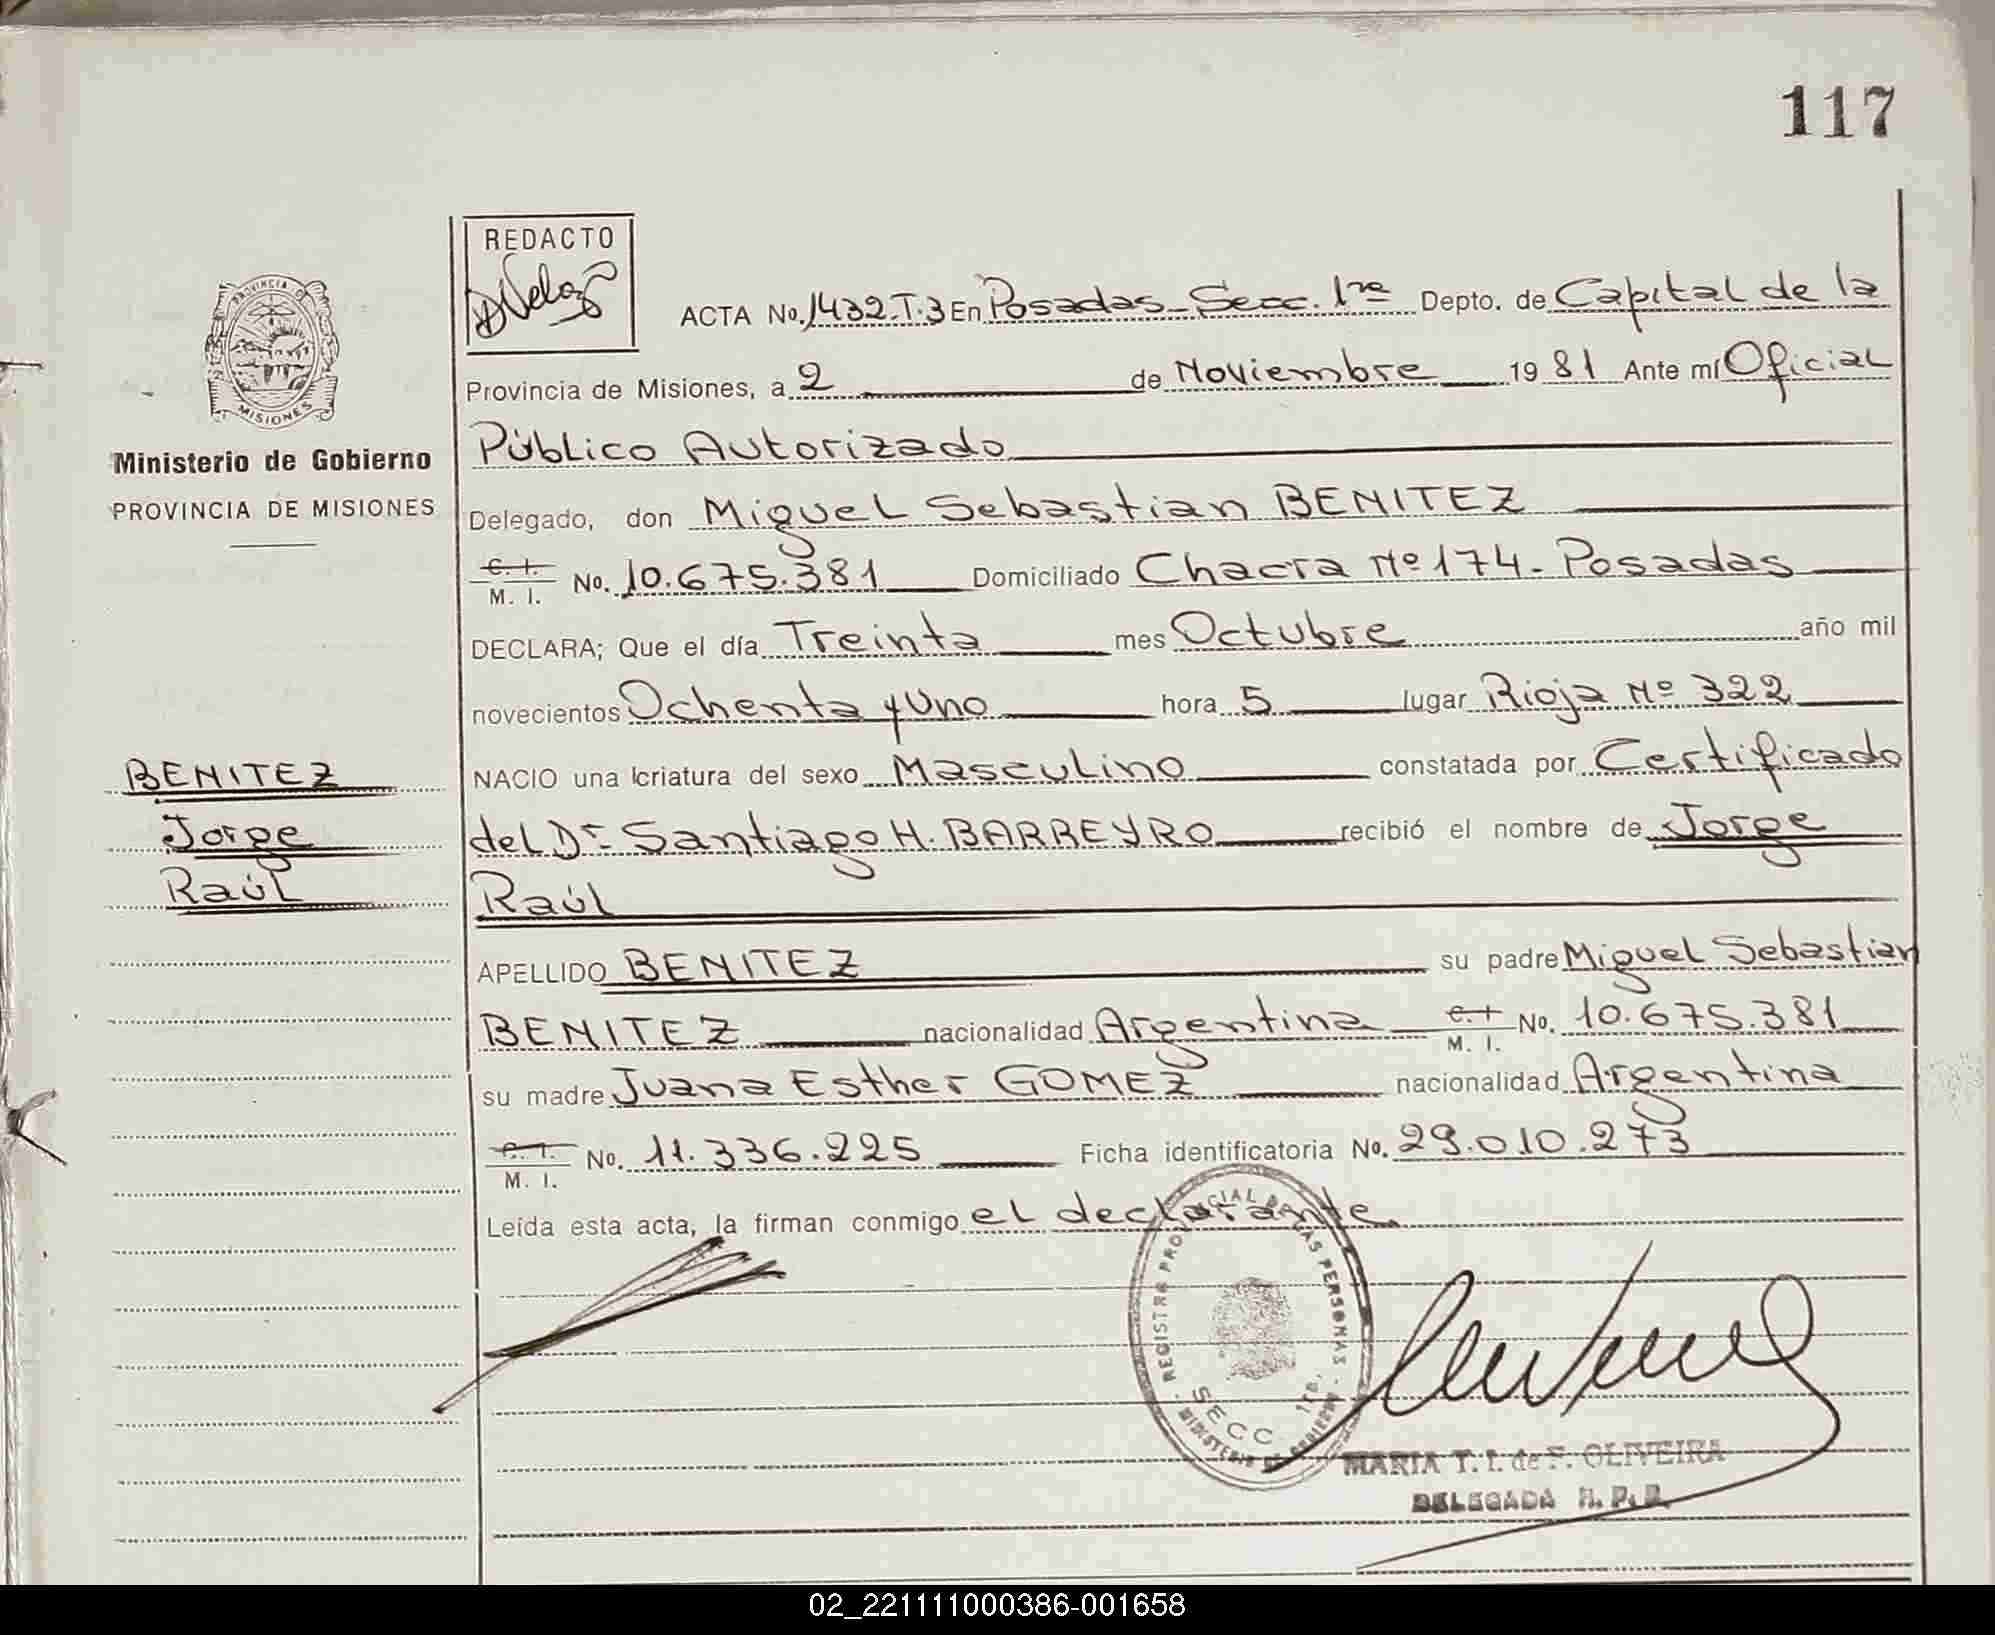 117
REDACTO
PROVINCIA D
MISIONES
Ministerio de Gobierno
PROVINCIA DE MISIONES
ACTA No. 1432.T.3 En Posadas - Secc. 1ra Depto. de Capital de la
Provincia de Misiones, a 2 de Noviembre 1981 Ante mí Oficial
Público Autorizado
Delegado, don Miguel Sebastian BENITEZ
C. I. M. I. No. 10.675.381 Domiciliado Chacra Nº 174 - Posadas
DECLARA; Que el día Treinta mes Octubre año mil
novecientos Ochenta y Uno hora 5 lugar Rioja Nº 322
NACIO una criatura del sexo Masculino constatada por Certificado
del Dr. Santiago H. BARREYRO recibió el nombre de Jorge
Raúl
BENITEZ
Jorge
Raúl
APELLIDO BENITEZ su padre Miguel Sebastian
BENITEZ nacionalidad Argentina C. I. M. I. No. 10.675.381
su madre Juana Esther GOMEZ nacionalidad Argentina
C. I. M. I. No. 11.336.225 Ficha identificatoria No. 29.010.273
Leída esta acta, la firman conmigo el declarante
REGISTRO PROVINCIAL DE LAS PERSONAS
SECC 1ra.
MINISTERIO DE GOBIERNO
MARIA T. I. de F. OLIVEIRA
DELEGADA R. P. P.
02_221111000386-001658